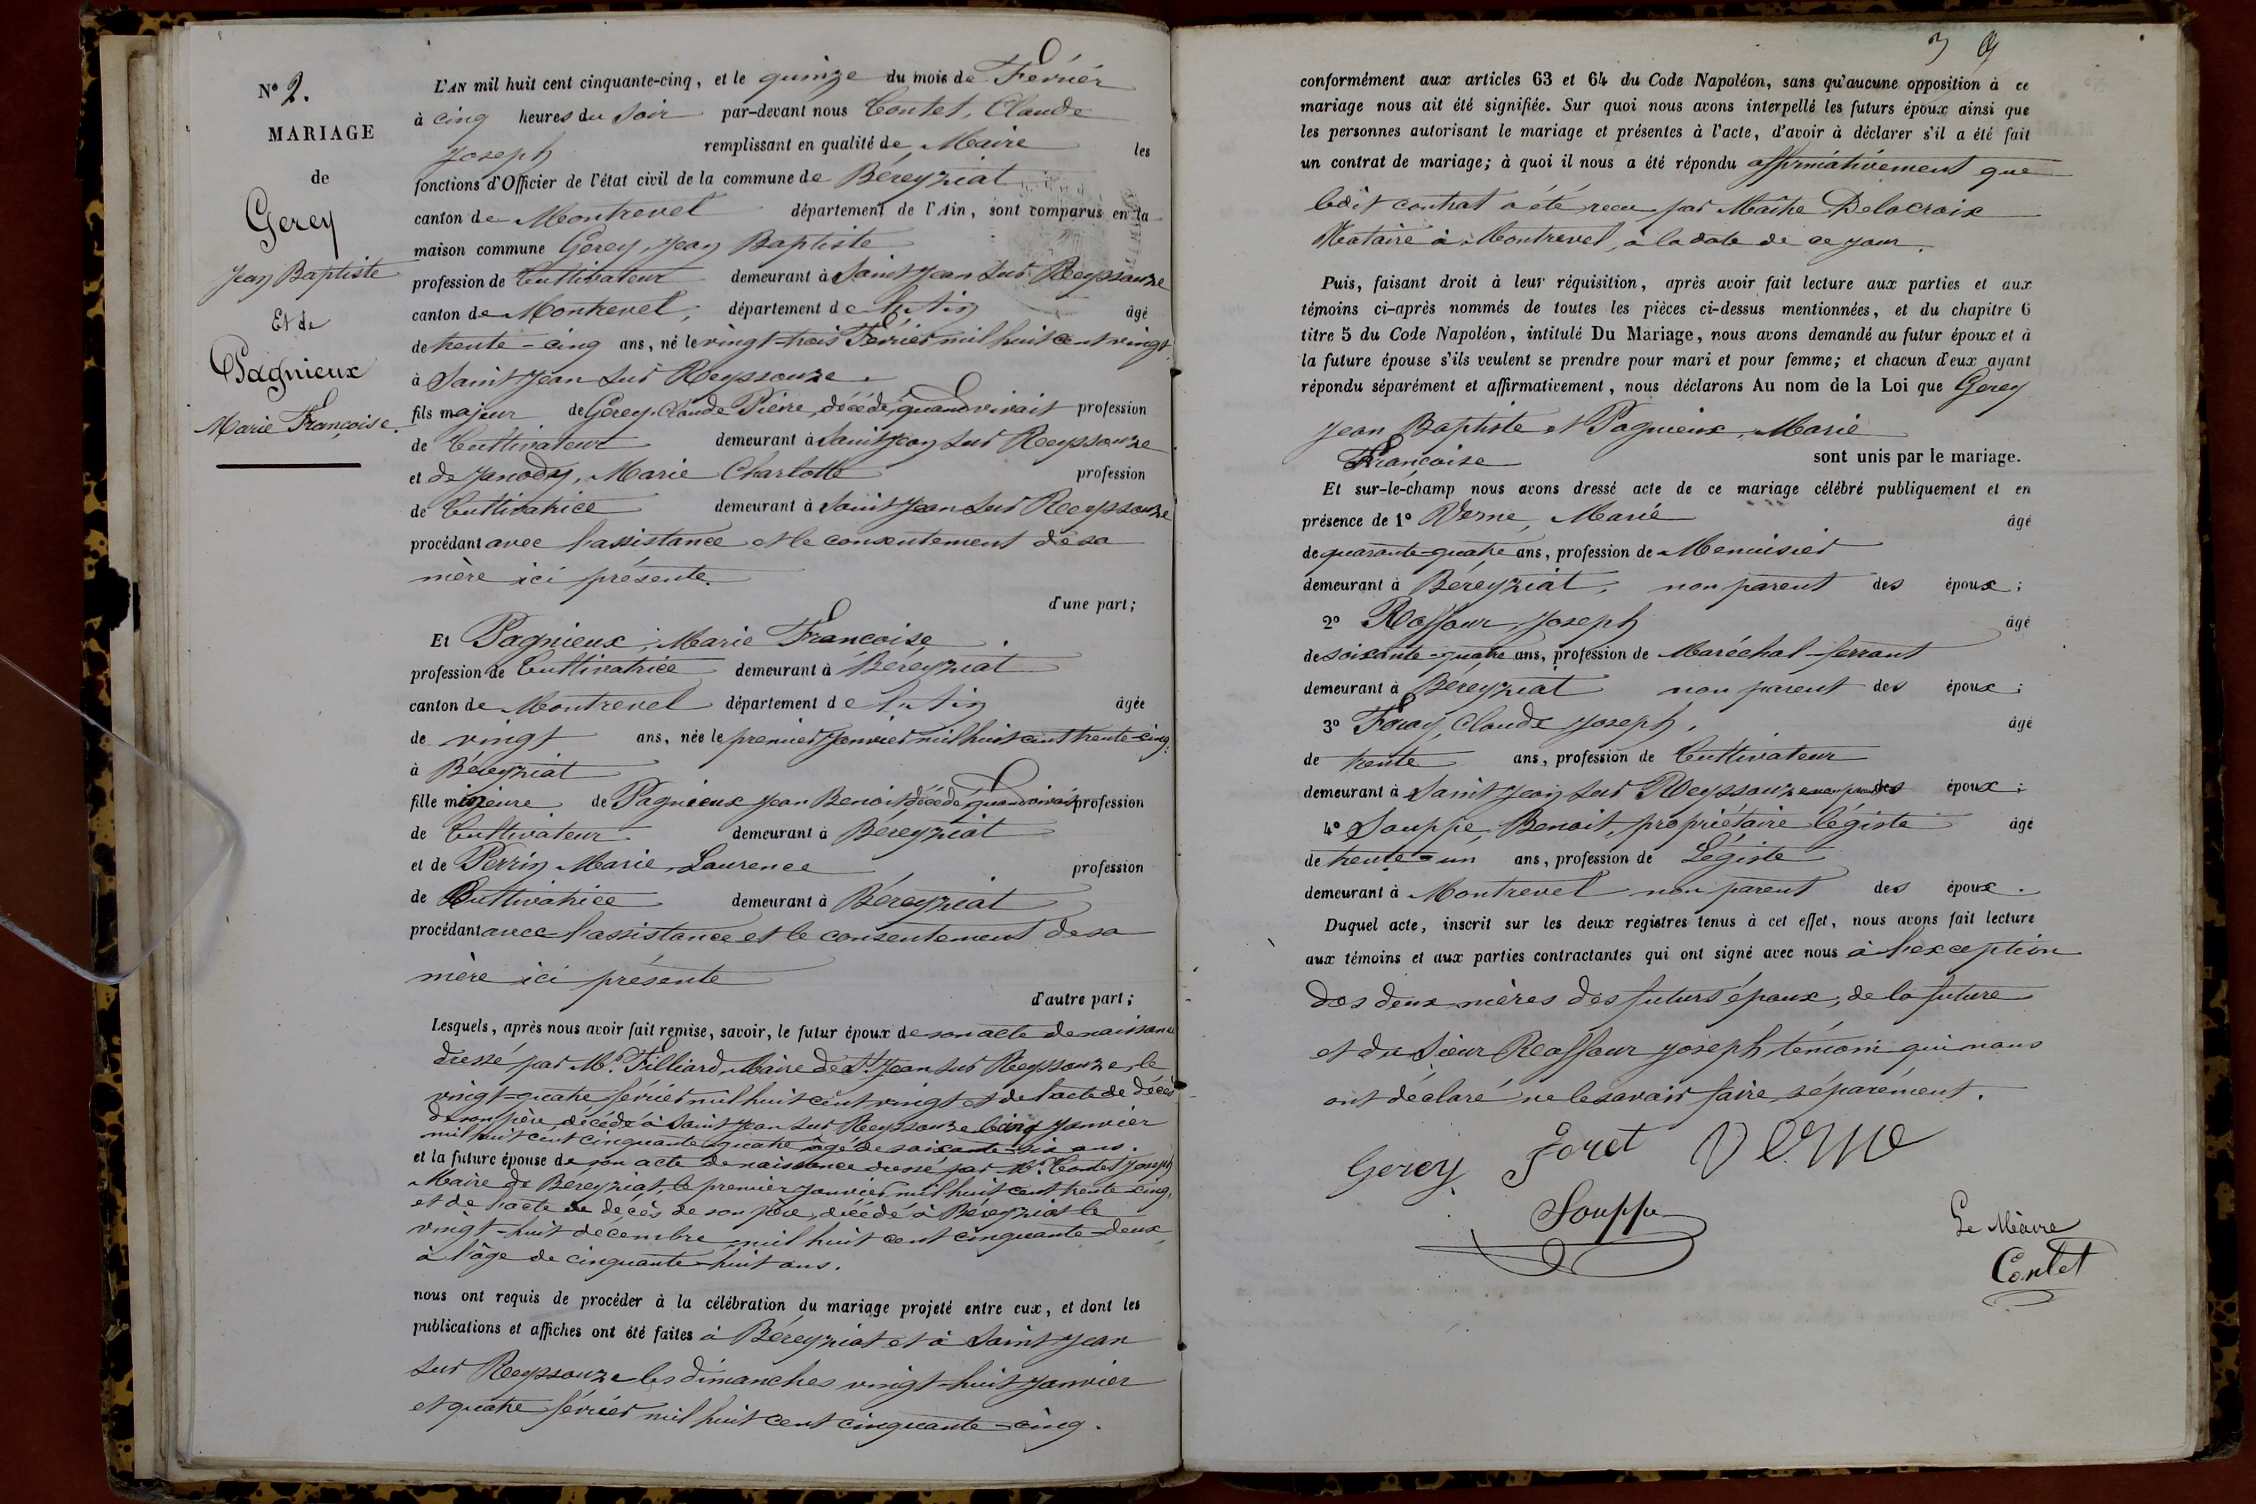 Nº 2.
MARIAGE
de
Gerey
Jean Baptiste
Et de
Pagnieux
Marie Françoise.
L'AN mil huit cent cinquante-cinq, et le quinze du mois de Février
à cinq heures du soir par-devant nous Contet, Claude
Joseph remplissant en qualité de Maire les
fonctions d'Officier de l'état civil de la commune de Béreyziat
canton de Montrevel département de l'Ain, sont comparus en la
maison commune Gerey, Jean Baptiste
profession de Cultivateur demeurant à Saint Jean Sur Reyssouze
canton de Montrevel, département de l'Ain âgé
de trente-cinq ans, né le vingt-trois Février mil huit cent vingt
à Saint Jean Sur Reyssouze.
fils majeur de Gerey, Claude Pierre, décédé, quand vivait profession
de Cultivateur demeurant à Saint Jean Sur Reyssouze
et de Janody, Marie Charlotte profession
de Cultivatrice demeurant à Saint Jean Sur Reyssouze
procédant avec l'assistance et le consentement de sa
mère ici présente.
d'une part;
Et Pagnieux, Marie Françoise
profession de Cultivatrice demeurant à Béreyziat
canton de Montrevel département de l'Ain âgée
de vingt ans, née le premier Janvier mil huit cent trente-cinq.
à Béreyziat
fille mineure de Pagnieux Jean Benoit, décédé, quand vivait profession
de Cultivateur demeurant à Béreyziat
et de Perrin Marie Laurence profession
de Cultivatrice demeurant à Béreyziat
procédant avec l'assistance et le consentement de sa
mère ici présente
d'autre part;
Lesquels, après nous avoir fait remise, savoir, le futur époux de son acte de naissance
dressé par Mr. Filliard, Maire de St. Jean sur Reyssouze, le
vingt-quatre février mil huit cent vingt et de l'acte de décès
de son père, décédé à Saint Jean sur Reyssouze le cinq Janvier
mil huit cent cinquante quatre âgé de soixante-six ans.
et la future épouse de son acte de naissance dressé par Mr. Contet Joseph
Maire de Béreyziat, le premier Janvier mil huit cent trente-cinq,
et de l'acte de décès de son père, décédé à Béreyziat le
vingt-huit décembre mil huit cent cinquante-deux,
à l'âge de cinquante-huit ans.
nous ont requis de procéder à la célébration du mariage projeté entre eux, et dont les
publications et affiches ont été faites à Béreyziat et à Saint Jean
sur Reyssouze les dimanches vingt-huit Janvier
et quatre février mil huit cent cinquante-cinq.
39
conformément aux articles 63 et 64 du Code Napoléon, sans qu'aucune opposition à ce
mariage nous ait été signifiée. Sur quoi nous avons interpellé les futurs époux ainsi que
les personnes autorisant le mariage et présentes à l'acte, d'avoir à déclarer s'il a été fait
un contrat de mariage; à quoi il nous a été répondu affirmativement que
ledit contrat a été reçu par Maître Delacroix
Notaire à Montrevel, à la date de ce jour.
Puis, faisant droit à leur réquisition, après avoir fait lecture aux parties et aux
témoins ci-après nommés de toutes les pièces ci-dessus mentionnées, et du chapitre 6
titre 5 du Code Napoléon, intitulé Du Mariage, nous avons demandé au futur époux et à
la future épouse s'ils veulent se prendre pour mari et pour femme; et chacun d'eux ayant
répondu séparément et affirmativement, nous déclarons Au nom de la Loi que Gerey
Jean Baptiste et Pagnieux, Marie
Françoise sont unis par le mariage.
Et sur-le-champ nous avons dressé acte de ce mariage célébré publiquement et en
présence de 1º Verne, Marie âgé
de quarante-quatre ans, profession de Menuisier
demeurant à Béreyziat, non parent des époux;
2º Roffour, Joseph âgé
de soixante-quatre ans, profession de Maréchal-ferrant
demeurant à Béreyziat non parent des époux;
3º Foray, Claude Joseph, âgé
de trente ans, profession de Cultivateur
demeurant à Saint Jean Sur Reyssouze non parent des époux;
4º Souppe, Benoit, propriétaire légiste âgé
de trente-un ans, profession de Légiste
demeurant à Montrevel non parent des époux.
Duquel acte, inscrit sur les deux registres tenus à cet effet, nous avons fait lecture
aux témoins et aux parties contractantes qui ont signé avec nous à l'exception
des deux mères des futurs époux, de la future
et du Sieur Roffour Joseph témoin qui nous
ont déclaré ne le savoir faire, séparément.
Gerey Foret Verne
Souppe
Le Maire
Contet